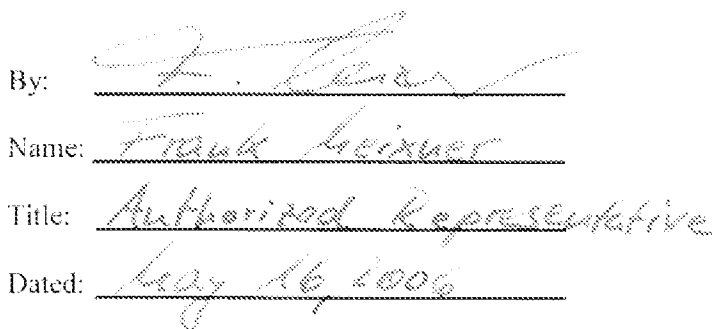 By:
Name: Frank Meixner
Title: Authorized Representative
Dated: May 16, 2006